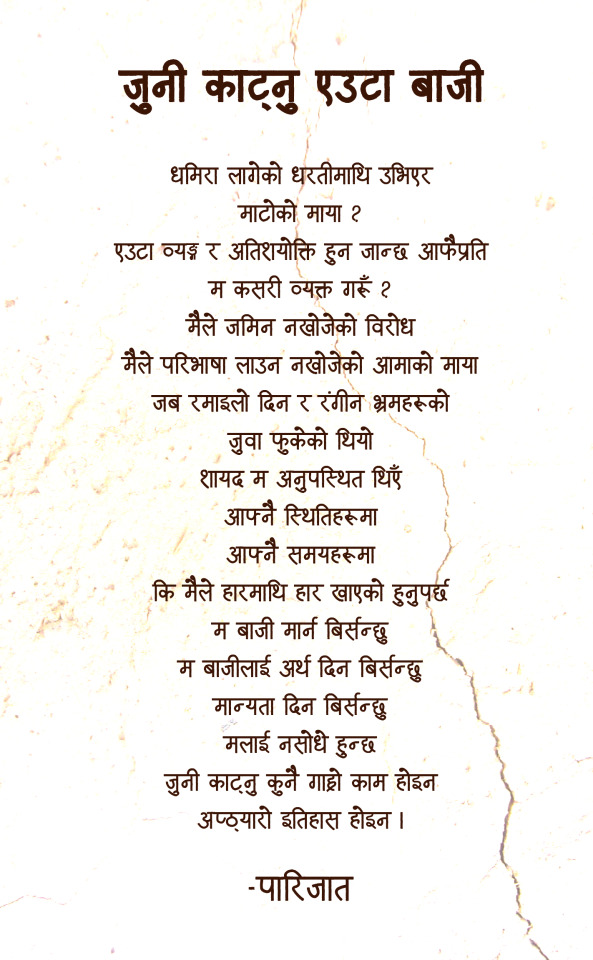 जुनी काट्नु एउटा बाजी
धमिरा लागेको धरतीमाथि उभिएर
माटोको माया ?
एउटा व्यङ्ग र अतिशयोक्ति हुन जान्छ आफैप्रति
म कसरी व्यक्त गरूँ ?
मैले जमिन नखोजेको विरोध
मैले परिभाषा लाउन नखोजेको आमाको माया
जब रमाइलो दिन र रंगीन भ्रमहरूको
जुवा फुकेको थियो
शायद म अनुपस्थित थिएँ
आफ्नै स्थितिहरूमा
आफ्नै समयहरूमा
कि मैले हारमाथि हार खाएको हुनुपर्छ
म बाजी मार्न बिर्सन्छु
म बाजीलाई अर्थ दिन बिर्सन्छु
मान्यता दिन बिर्सन्छु
मलाई नसोधे हुन्छ
जुनी काट्नु कुनै गाह्रो काम होइन
अप्ठ्यारो इतिहास होइन ।
-पारिजात